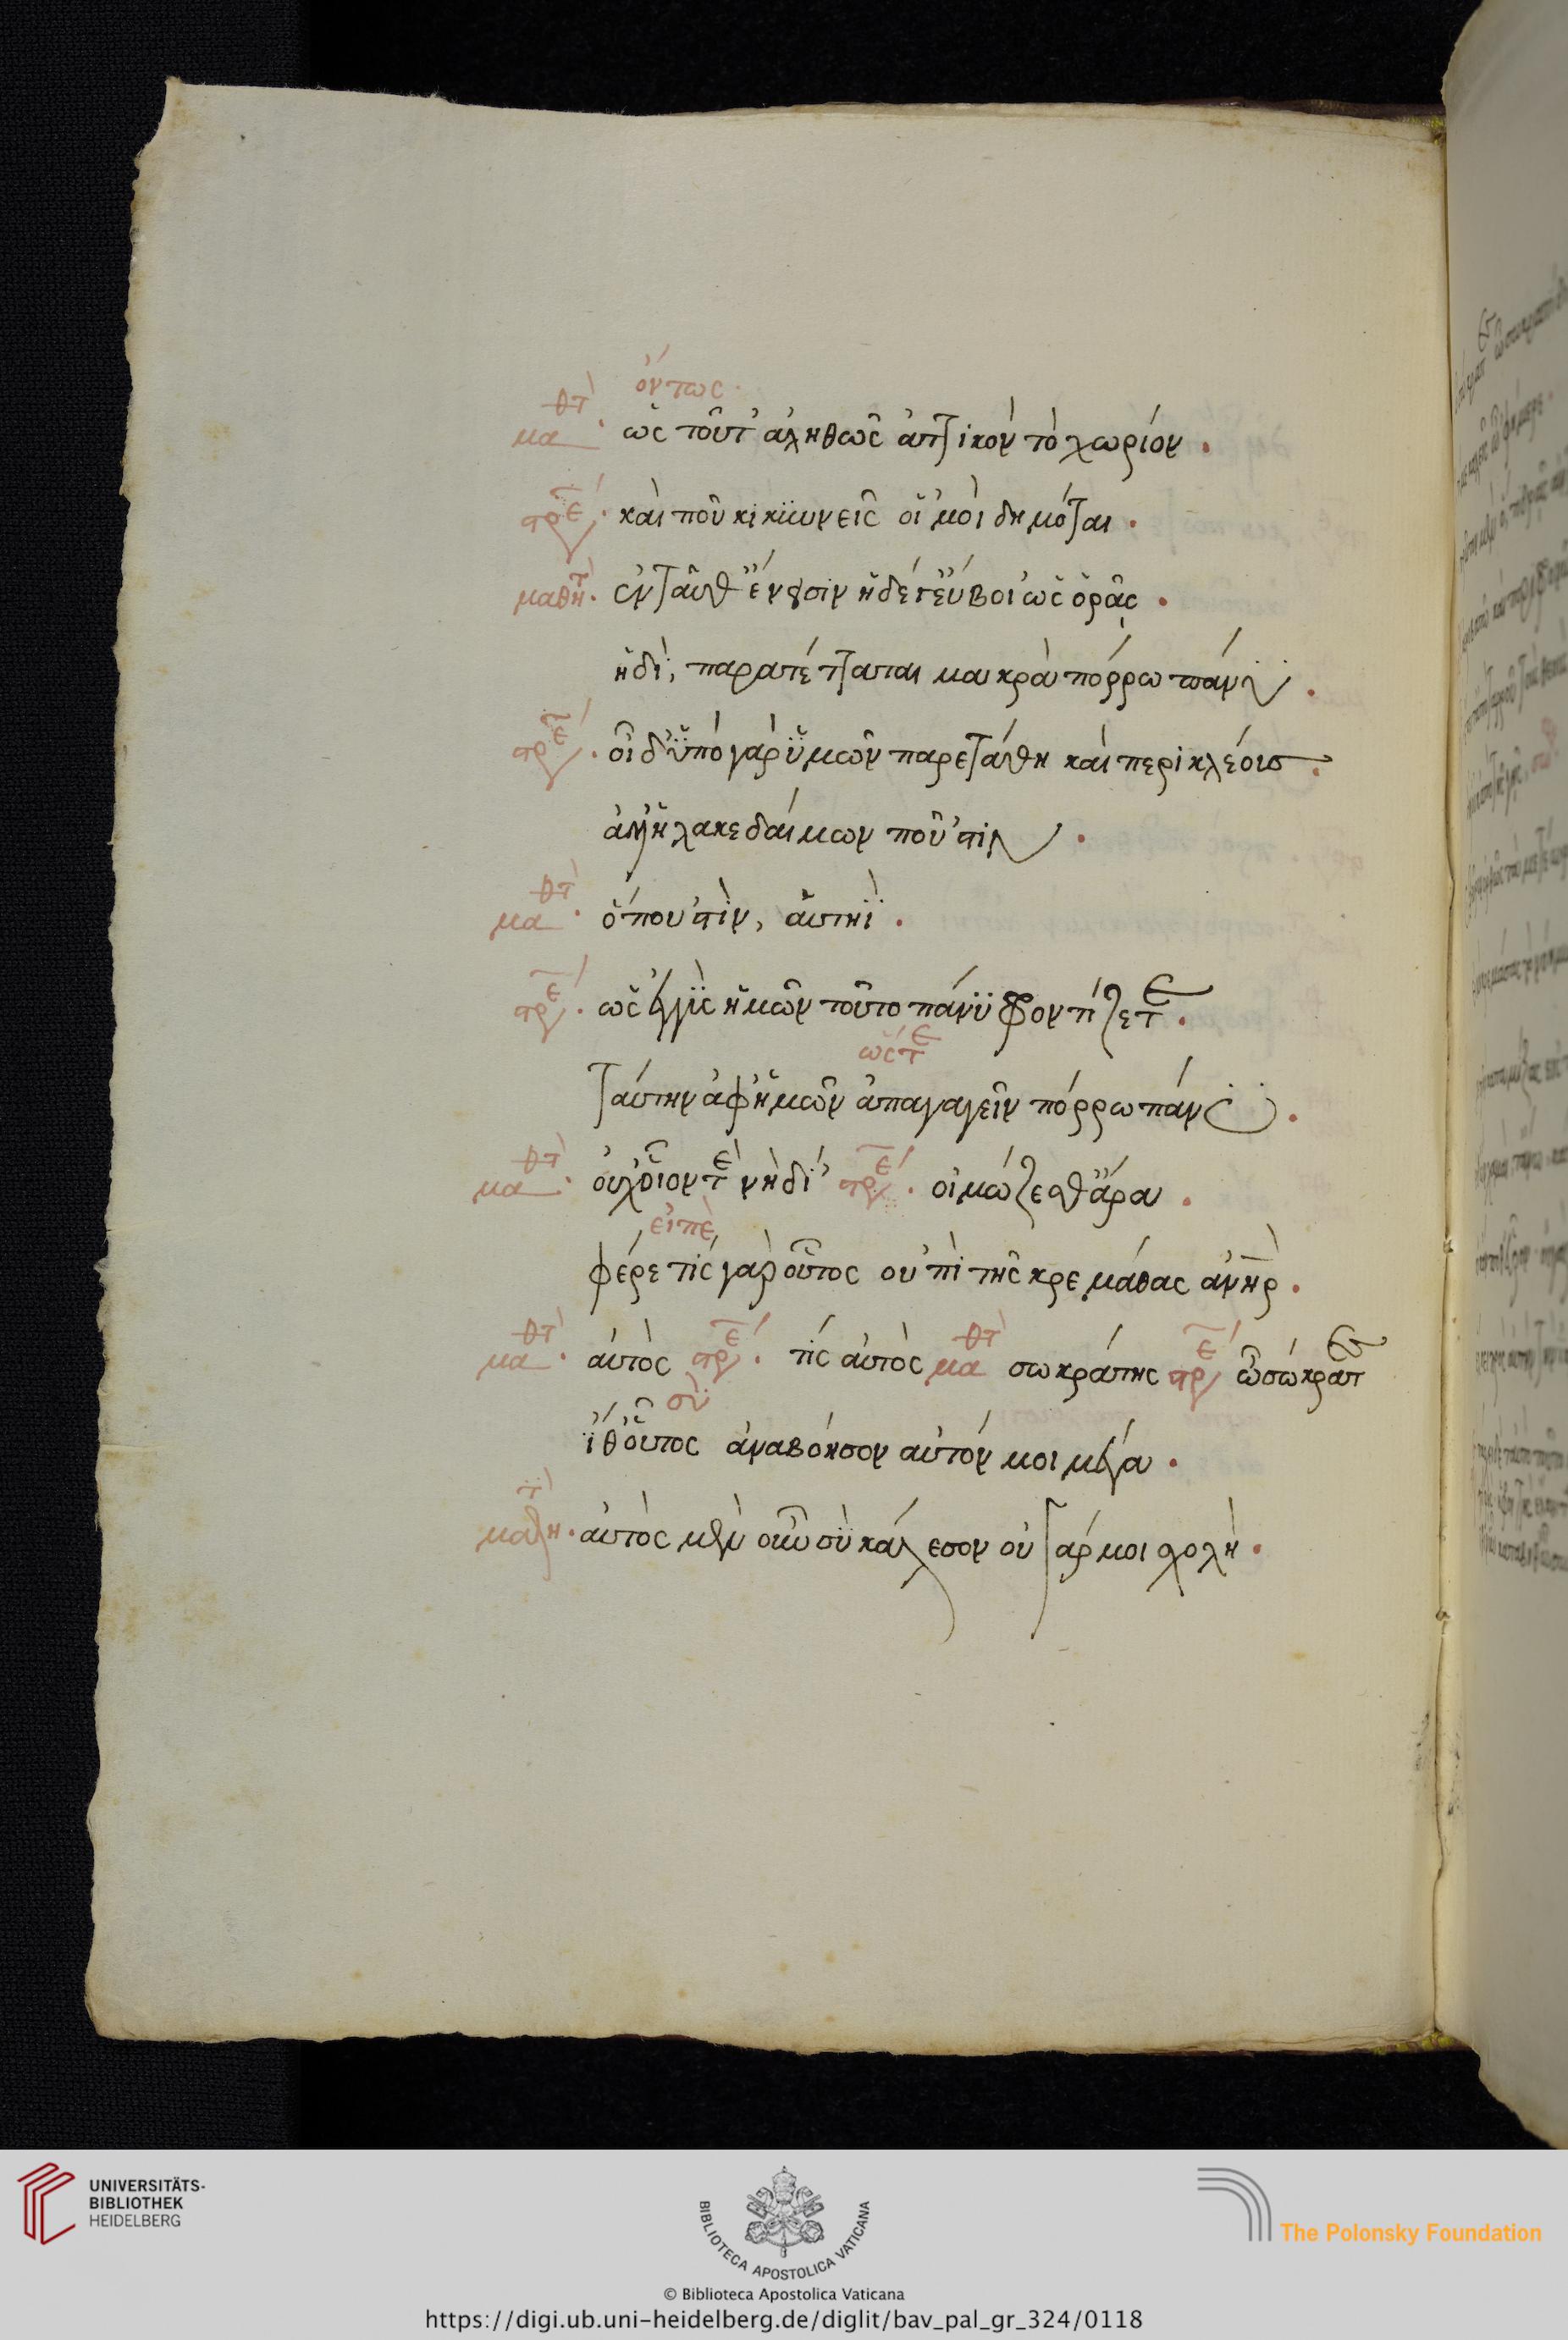 ὄντως
μαθτ ὡς τοῦτ' ἀληθῶς ἀττικὸν τὸ χωρίον.
πρε. καὶ ποῦ κικϋωνεῖς οἱ' μοὶ δημόται.
μαθητ. ἐνταῦθ' ἔνεισιν ἡδέ γ' εὔβοι ὡς ὁρᾶς.
ἡδὶ, παρατέτταται μακρὰ πόρρω πάνυ.
πρε. οἶδ' ὑπὸ γὰρ ὑμῶν παρετάθη καὶ περικλέοισ.
ἀλλ' ἡ λακεδαίμων ποῦ 'στιν.
μαθτ. ὅπου 'στὶν, αὑτηΐ.
πρε. ὡς ἐγγὺς ἡμῶν τοῦτο πάνυ φροντίζετε.
ὥςτε
ταύτην ἀφ' ἡμῶν ἀπαγαγεῖν πόρρω πάνυ.
μαθτ. οὐχ οἷόντε νὴ δί' πρε. οἰμώζεσθ' ἄρα.
εἰπὲ
φέρε τίς γὰρ οὗτος οὑπὶ τῆς κρεμάθας ἀνὴρ.
μαθτ. αὐτὸς πρε. τίς αὐτὸς μαθτ σωκράτης πρε ὦ σώκρατες
σὺ
ἴθ' οὗτος ἀναβόησον αὐτόν μοι μέγα.
μαθητ. αὐτὸς μὲν οὖν σὺ κάλεσον οὐ γάρ μοι σχολὴ.
UNIVERSITÄTS-
BIBLIOTHEK
HEIDELBERG
BIBLIOTECA APOSTOLICA VATICANA
The Polonsky Foundation
© Biblioteca Apostolica Vaticana
https://digi.ub.uni-heidelberg.de/diglit/bav_pal_gr_324/0118